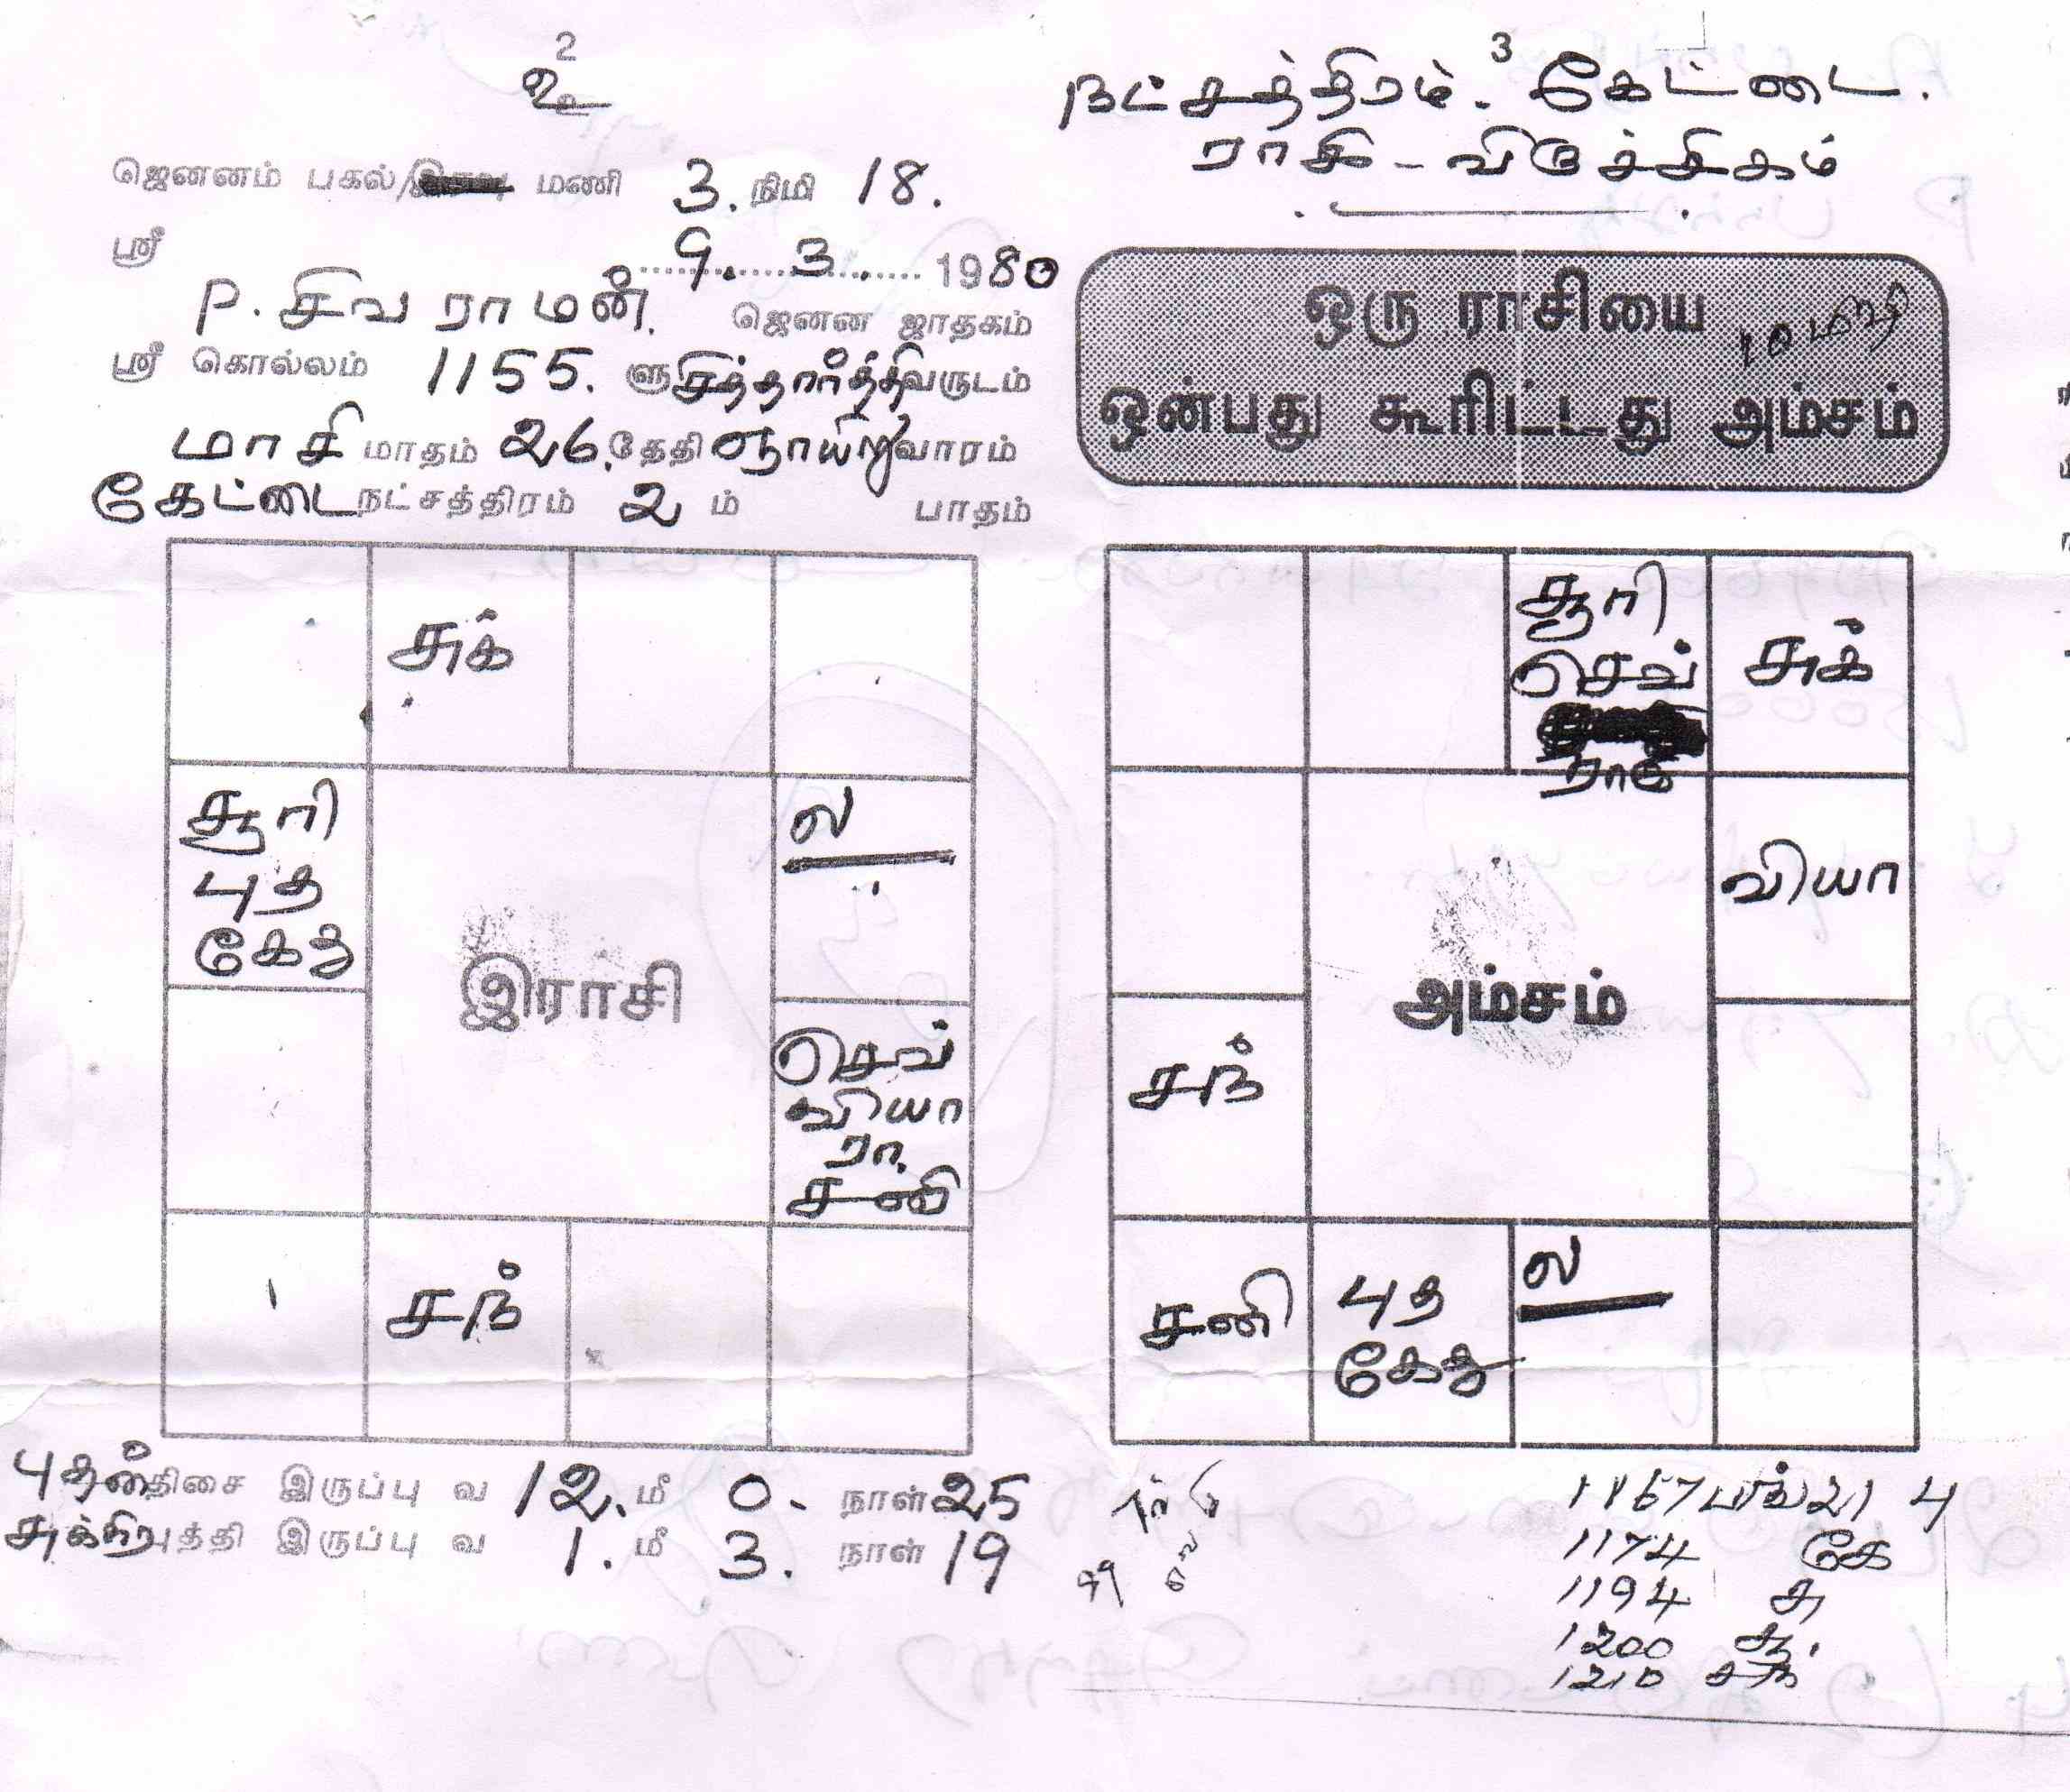 2
உ
ஜெனனம் பகல்/ மணி 3. நிமி 18.
ஸ்ரீ 9. 3. 1980
P. சிவராமன். ஜெனன ஜாதகம்
ஸ்ரீ கொல்லம் 1155. ளு சித்தார்த்தி வருடம்
மாசி மாதம் 26. தேதி ஞாயிறு வாரம்
கேட்டை நட்சத்திரம் 2 ம் பாதம்
சுக்
சூரி
புத
கேது
ல
இராசி
செவ்
வியா
ரா
சனி
சந்
புதன் திசை இருப்பு வ 12. மீ 0. நாள் 25
சுக்கிர புத்தி இருப்பு வ 1. மீ 3. நாள் 19
3
நட்சத்திரம். கேட்டை.
ராசி - விருச்சிகம்
ஒரு ராசியை
ஒன்பது கூரிட்டது அம்சம்
சூரி
செவ்
ராகு
சுக்
வியா
அம்சம்
சந்
சனி
புத
கேது
ல
1167 21 பு
1174 கே
1194 சு
1200 சூ.
1210 சந்